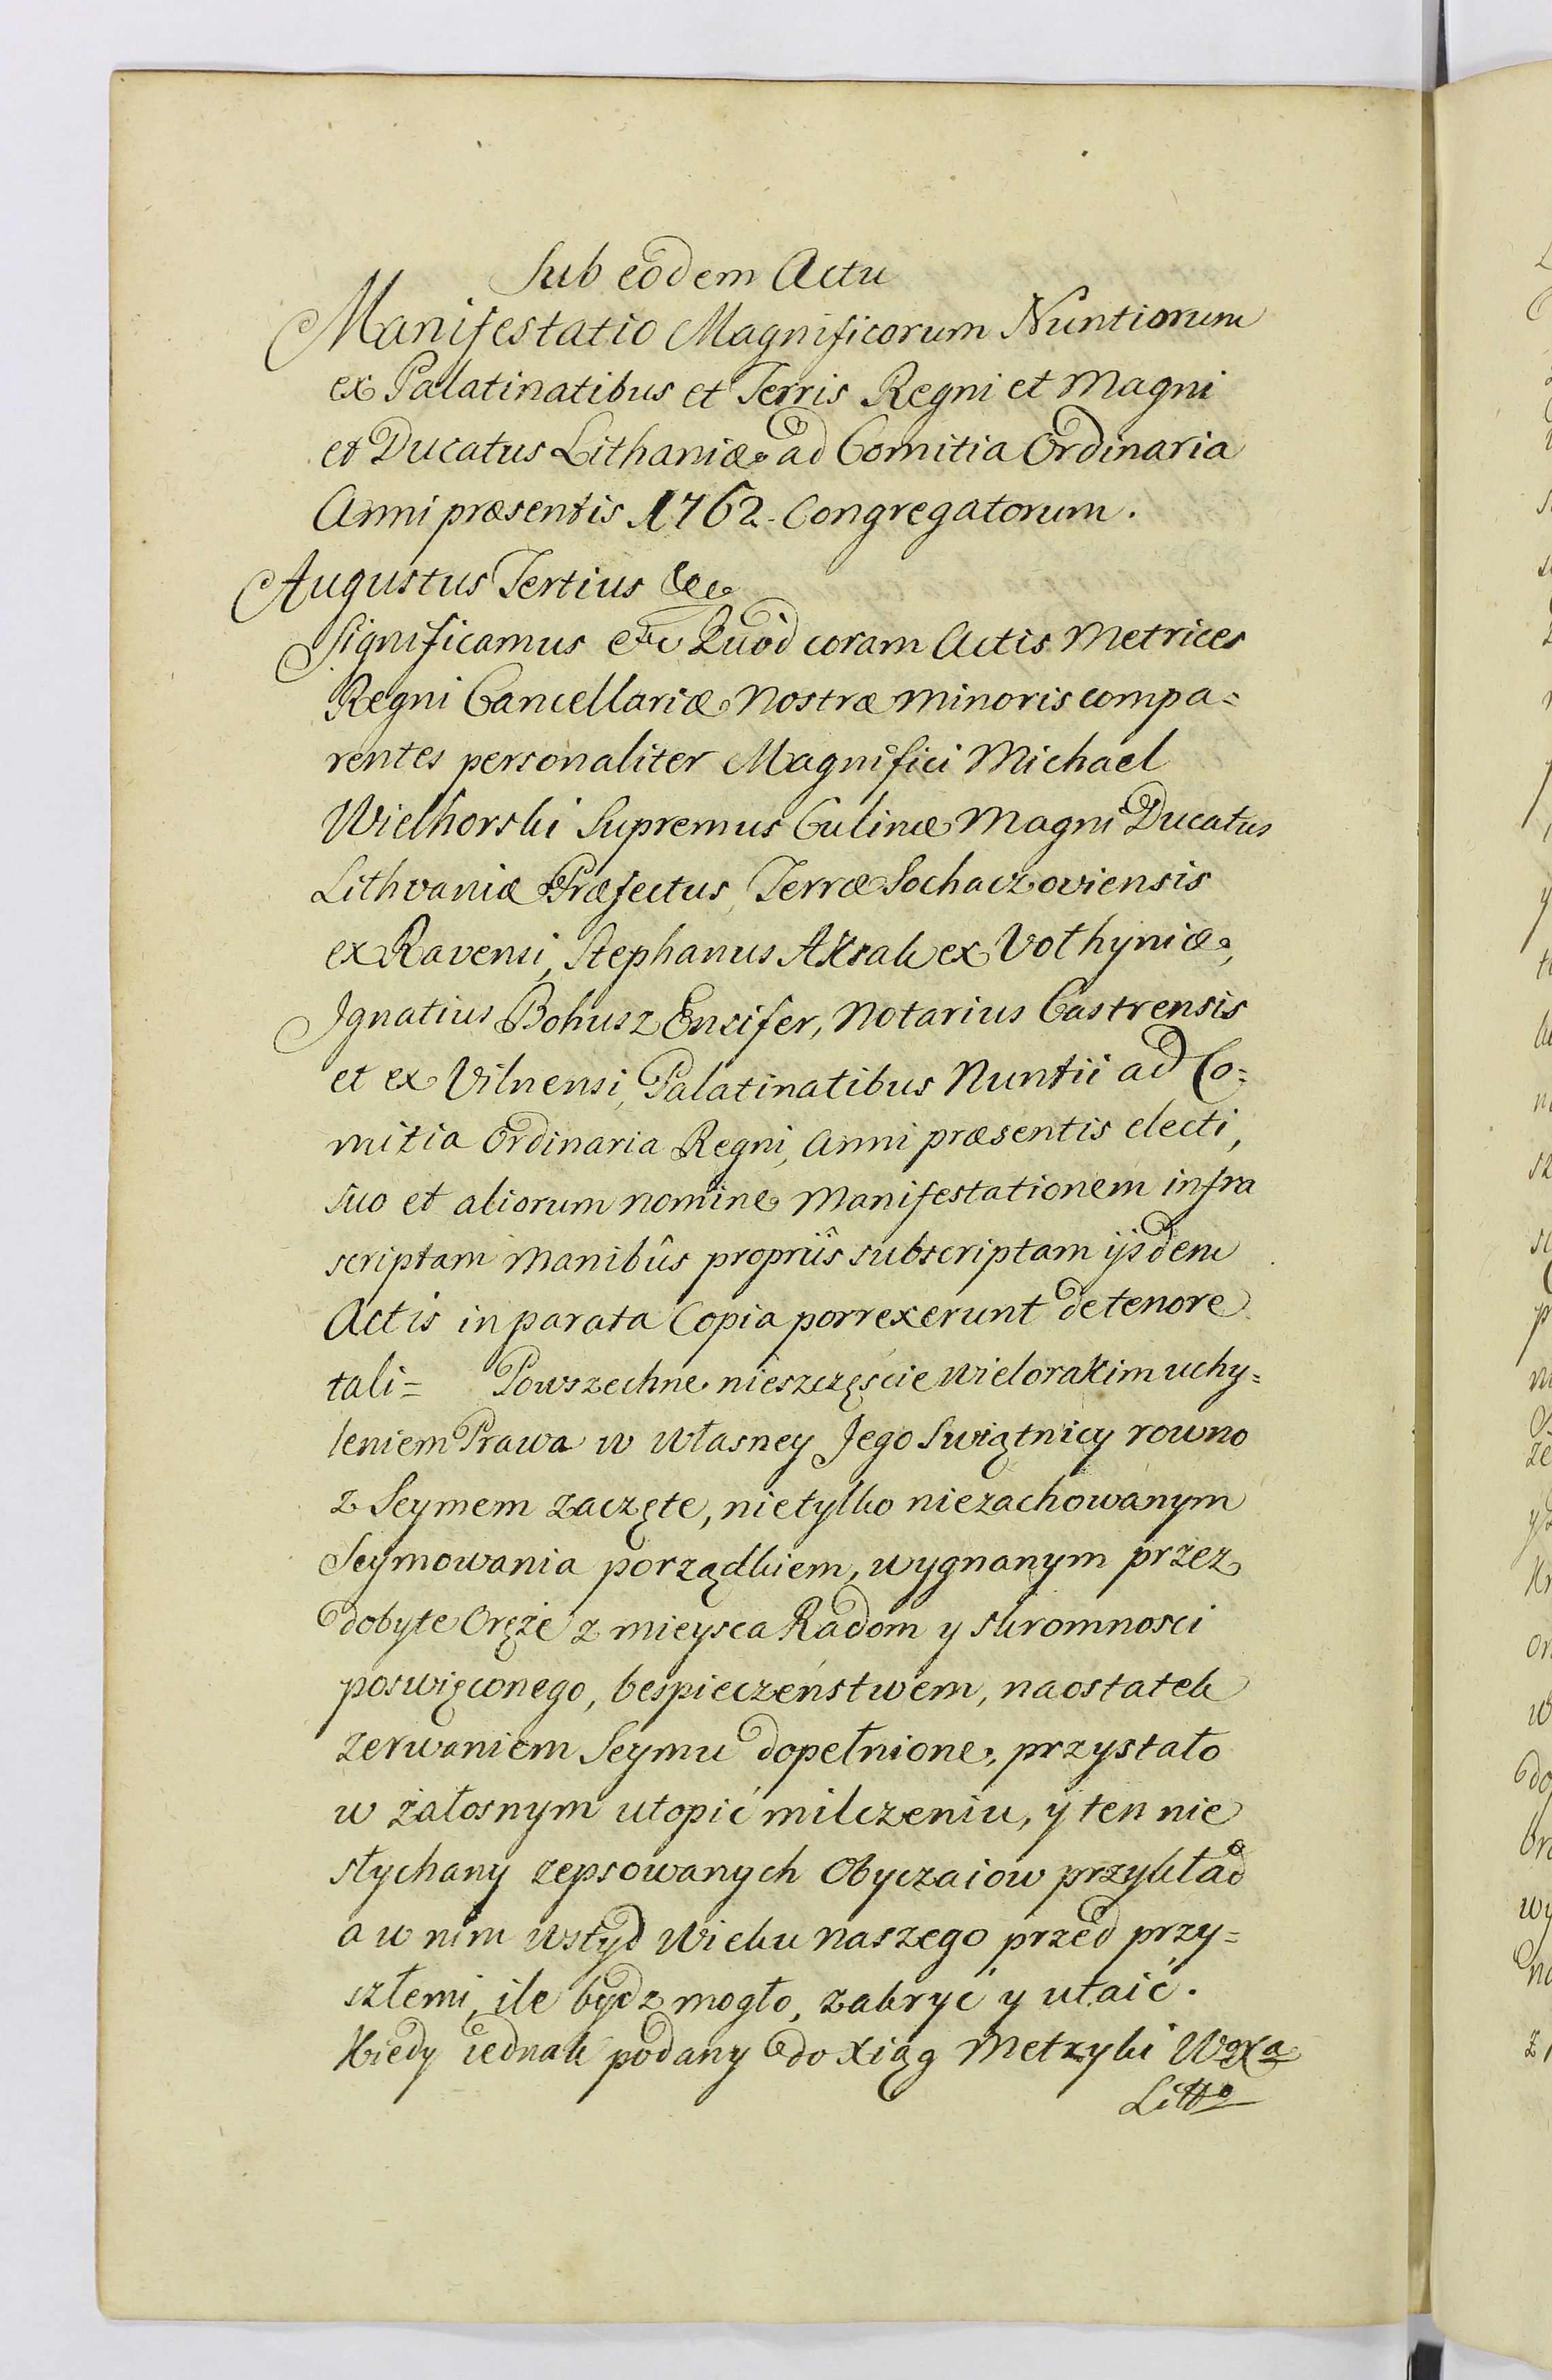 Sub eodem Actu
Manifestatio Magnificorum Nuntiorum
ex Palatinatibus et Terris Regni et Magni
et Ducatus Lithaniæ ad Comitia Ordinaria
Anni præsentis 1762. Congregatorum.
Augustus Tertius &c
Significamus etc Quòd coram Actis Metrices
Regni Cancellariæ Nostræ minoris compa=
rentes personaliter Magnifici Michael
Wielhorski Supremus Culinæ Magni Ducatus
Lithvaniæ Præfectus, Terræ Sochaczoviensis
ex Ravensi, Stephanus Aksak ex Volhyniæ,
Ignatius Bohusz Ensifer, Notarius Castrensis
et ex Vilnensi, Palatinatibus Nuntii ad Co=
mitia Ordinaria Regni, Anni præsentis electi,
suo et aliorum nomine Manifestationem infra
scriptam Manibûs propriîs subscriptam ijsdem
Actis in parata Copia porrexerunt de tenore
tali= Powszechne nieszczęście wielorakim uchy=
leniem Prawa w własney Jego Swiątnicy rowno
z Seymem zaczęte, nietylko niezachowanym
Seymowania porządkiem, wygnanym przez
dobyte Oręże z mieysca Radom y skromnosci
poswięconego, bespieczeństwem, naostatek
zerwaniem Seymu dopełnione, przystało
w żałosnym utopić milczeniu, y ten nie
słychany zepsowanych Obyczaiow przykład
a w nim wstyd Wieku naszego przed przy=
szłemi, ile bydz mogło, zakryć y utaić.
Kiedy iednak podany do Xiąg Metryki WoXa
Litto